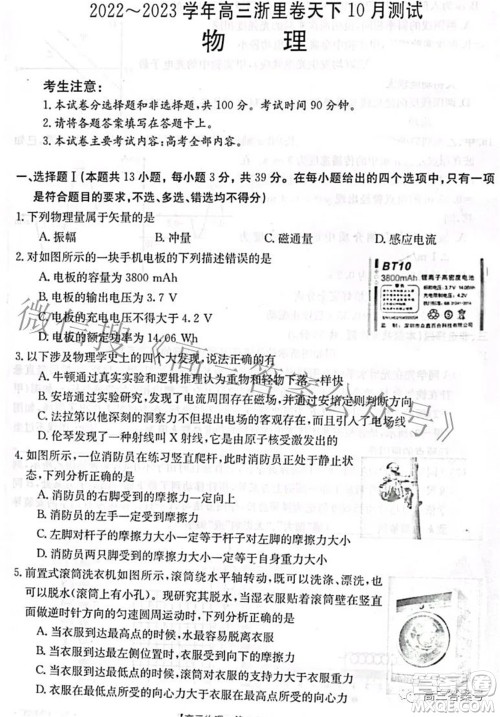 2022～2023学年高三浙里卷天下10月测试
物 理
考生注意：
1.本试卷分选择题和非选择题，共100分。考试时间90分钟。
2.请将各题答案填写在答题卡上。
3.本试卷主要考试内容：高考全部内容。
一、选择题Ⅰ(本题共13小题，每小题3分，共39分。在每小题给出的四个选项中，只有一项
是符合题目要求的，不选、多选、错选均不得分)
1.下列物理量属于矢量的是
A.振幅 B.冲量 C.磁通量 D.感应电流
2.对如图所示的一块手机电板的下列描述错误的是
A.电板的容量为3800 mAh
B.电板的输出电压为3.7 V
C.电板的充电电压不大于4.2 V
D.电板的额定功率为14.06 Wh
BT10
3800mAh 锂离子高密度电池
3.以下涉及物理学史上的四个重大发现，下列说法正确的有
A.牛顿通过真实实验和逻辑推理法认为重物和轻物下落一样快
B.安培通过实验研究，发现了电流周围存在磁场，并通过安培定则判断方向
C.法拉第以他深刻的洞察力不但提出电场的客观存在，而且引入了电场线
D.伦琴发现了一种射线叫X射线，它是由原子核受激发出的
4.如图所示，一消防员在练习竖直爬杆，此时消防员正处于静止状
态，下列分析正确的是
A.消防员的右脚受到的摩擦力一定向上
B.消防员的左手一定受到摩擦力
C.左脚对杆子的摩擦力大小一定等于杆子对左脚的摩擦力大小
D.消防员两只脚受到的摩擦力大小一定相等
5.前置式滚筒洗衣机如图所示，滚筒绕水平轴转动，既可以洗涤、漂洗，也
可以脱水(滚筒上有小孔)。现研究其脱水功能，假设脱水时，衣服做
逆时针方向的匀速圆周运动，下列分析正确的是
A.当衣服到达最高点的时候，水最容易脱离衣服
B.当衣服到达最低点的时候，衣服对滚筒的压力最大
C.当衣服到达最左端的时候，衣服受到的摩擦力向下
D.衣服在最高点的速度大小可能大于在最低点的速度大小
微信搜《高三答案公众号》
高三答案